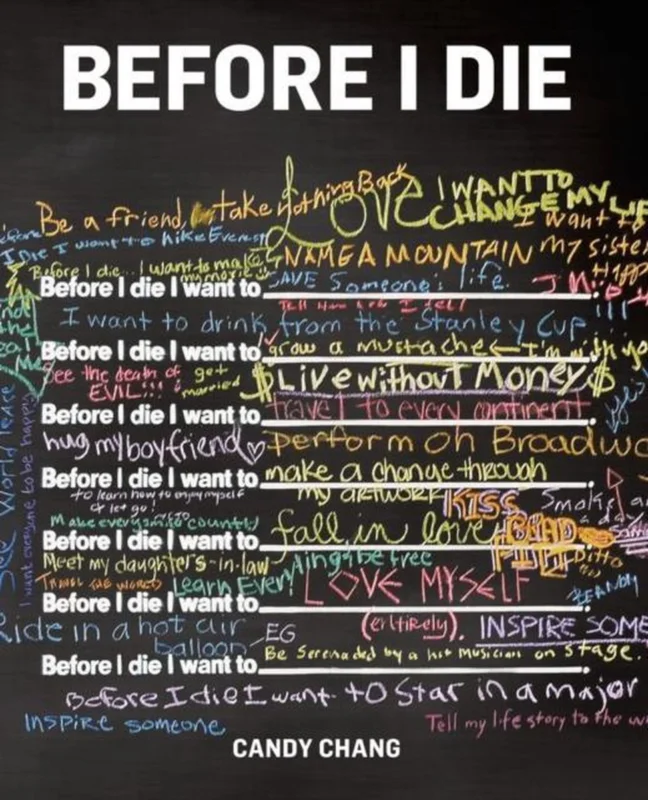 BEFORE I DIE
Be a friend, take nothing Back
LOVE
I WANT TO
CHANGE MY LIFE
I Die I want to hike Everest
I want to
NAME A MOUNTAIN
my sister
Before I die... I want to make
my movie
SAVE Someone's life.
Before I die I want to
Tell him how I feel!
I want to drink from the Stanley Cup !!!
Before I die I want to
grow a mustache ← I'm with yo
See the death of
EVIL!!!
get
married
$Live without Money$
Before I die I want to
travel to every continent
hug my boyfriend♡
perform on Broadwa
Before I die I want to
make a change through
my artwork
to learn how to enjoy myself
& let go!
KISS
Smoke a
Make everyone count
Before I die I want to
fall in love
Meet my daughter's-in-law
be free
Ditto
TRAVEL THE WORLD
Learn Every
LOVE MYSELF
Before I die I want to
(entirely).
INSPIRE SOME
Ride in a hot air
balloon
EG
Be Serenaded by a hot musician on stage.
Before I die I want to
Before I die I want to Star in a major
INSPIRE someone
Tell my life story to the w
I want everyone to be happy
See World Peace
CANDY CHANG